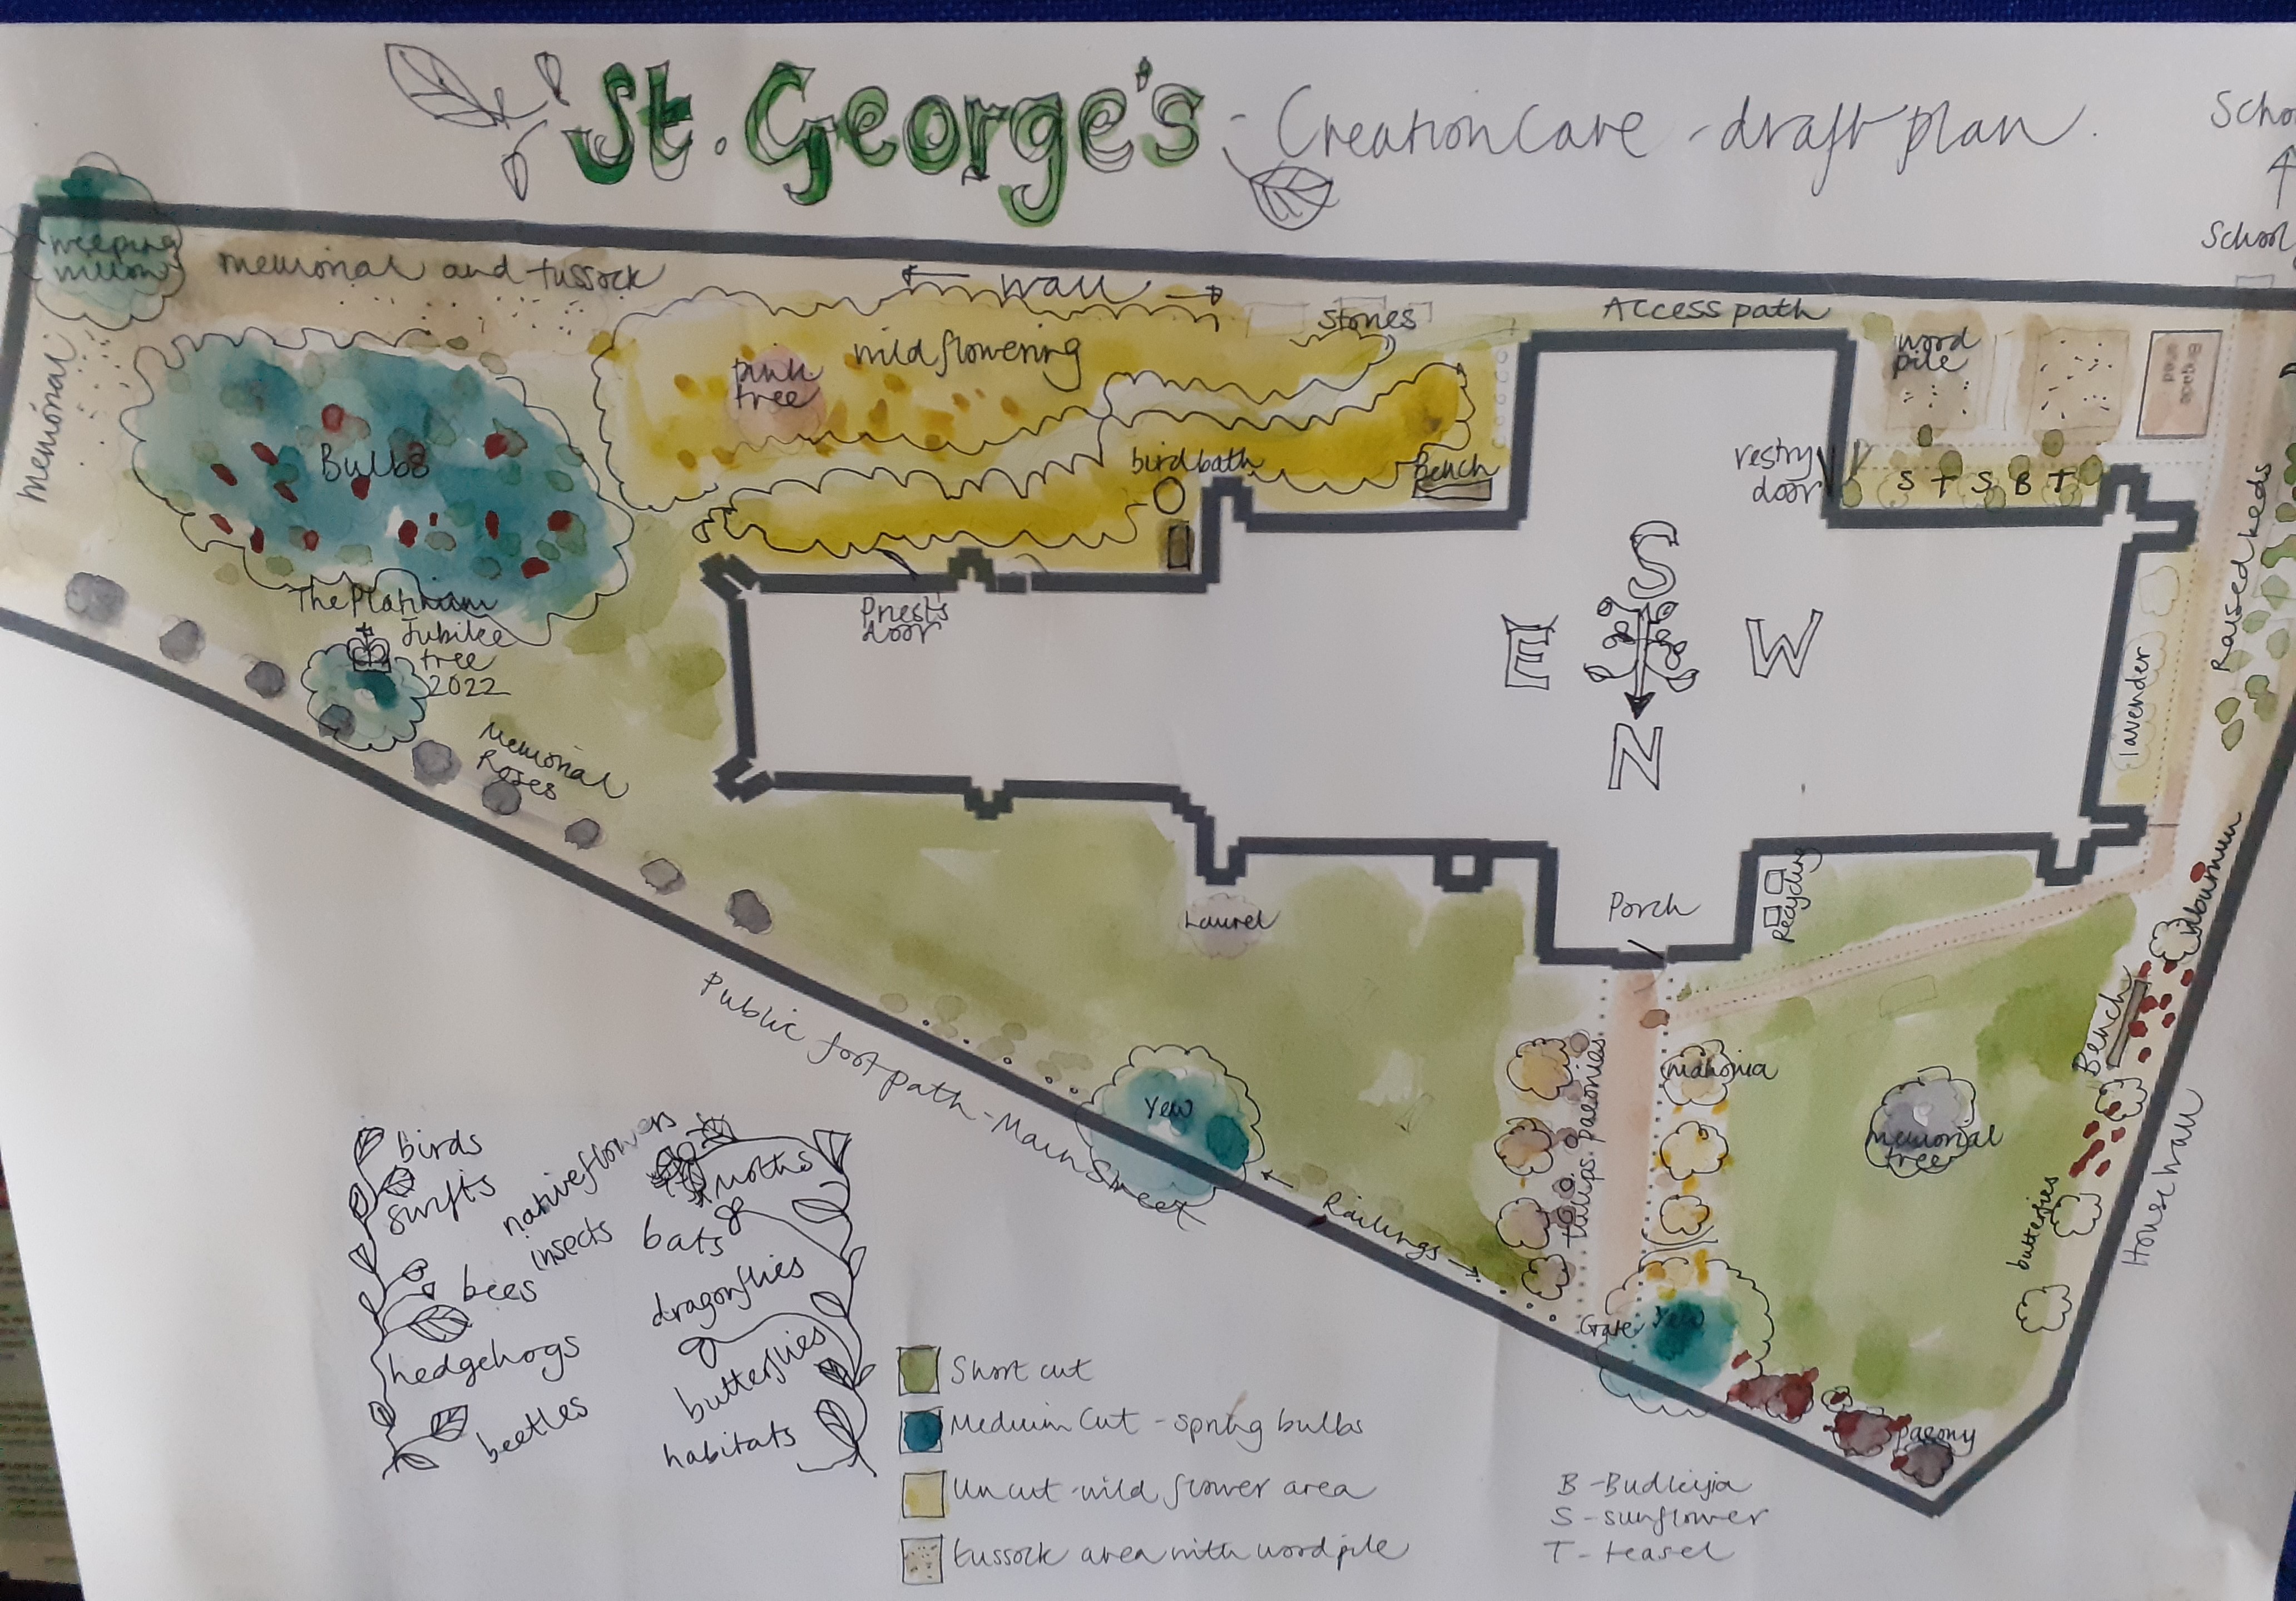 St. George's - Creation Care - draft plan.
School
weeping
willow
memorial and tussock
wall
stones
Access path
wood
pile
memorial
Bulbs
pink
tree
wild flowering
bird bath
Bench
vestry
door
S T S B T
Raised beds
The Platinum
Jubilee
tree
2022
Priest's
door
S
E
W
N
lavender
Memorial
Roses
Laurel
Porch
Recycling
Bench
Public footpath - Main Street
Yew
Railings
tulips. paeonies.
mahonia
memorial
tree
butterflies
House wall
Gate
Yew
paeony
birds
swifts
native flowers
insects
moths
bats
bees
dragonflies
hedgehogs
butterflies
beetles
habitats
Short cut
Medium Cut - spring bulbs
Uncut - wild flower area
tussock area with wood pile
B - Budleija
S - sunflower
T - teasel